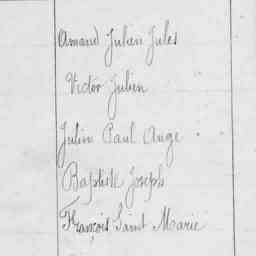 Amand Julien Jules
Victor Julien
Julien Paul Ange
Baptiste Joseph
François Saint Marie